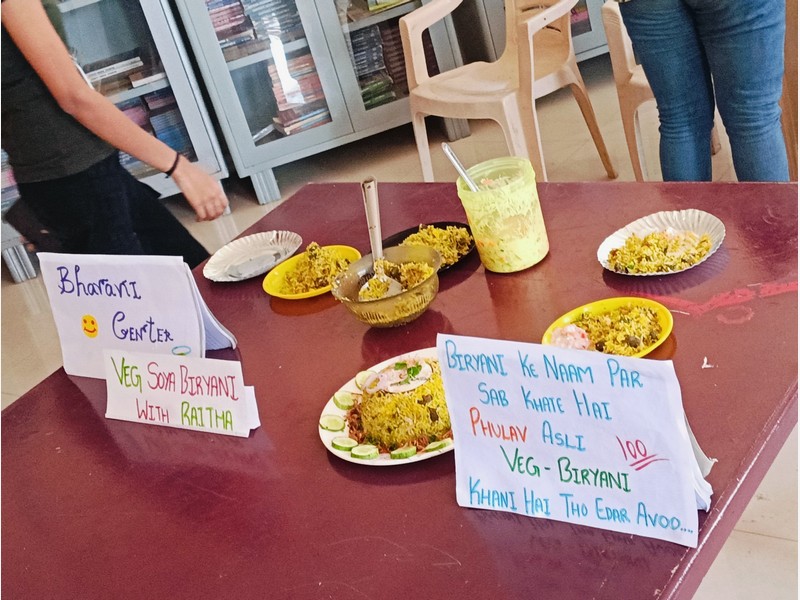 Bharani
Center
VEG SOYA BIRYANI
WITH RAITHA
BIRYANI KE NAAM PAR
SAB KHATE HAI
PHULAV ASLI 100
VEG-BIRYANI
KHANI HAI THO EDAR AVOO....